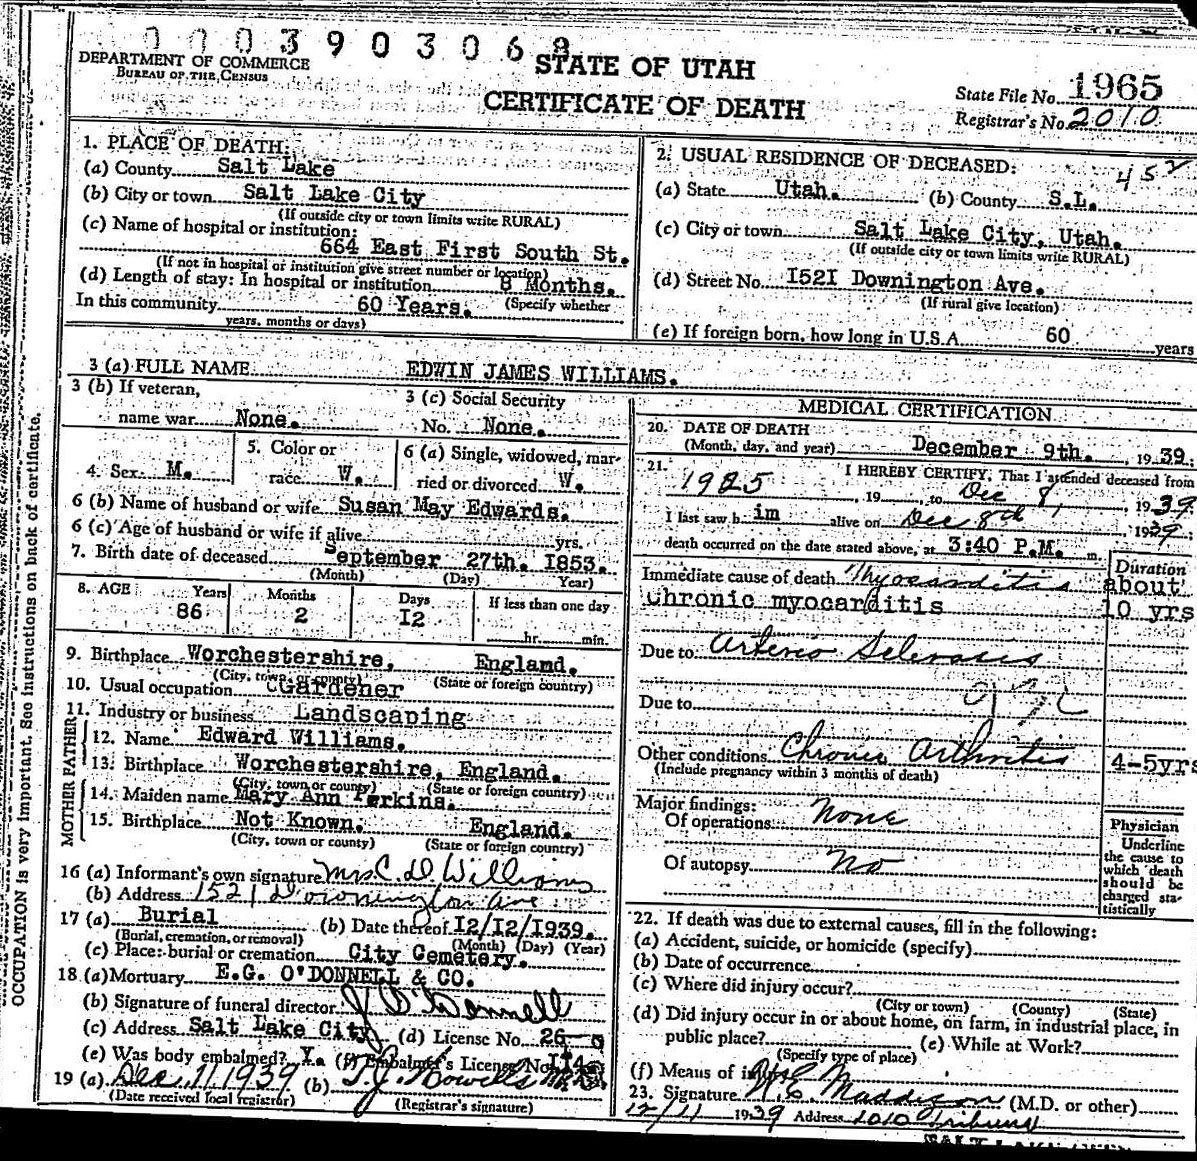 0003903068
DEPARTMENT OF COMMERCE
BUREAU OF THE CENSUS
STATE OF UTAH
CERTIFICATE OF DEATH
State File No. 1965
Registrar's No. 2010
1. PLACE OF DEATH:
(a) County Salt Lake
(b) City or town Salt Lake City
(If outside city or town limits write RURAL)
(c) Name of hospital or institution:
664 East First South St.
(If not in hospital or institution give street number or location)
(d) Length of stay: In hospital or institution 8 Months.
In this community 60 Years. (Specify whether
years, months or days)
2. USUAL RESIDENCE OF DECEASED: 452
(a) State Utah. (b) County S.L.
(c) City or town Salt Lake City, Utah.
(If outside city or town limits write RURAL)
(d) Street No. I52I Downington Ave.
(If rural give location)
(e) If foreign born, how long in U.S.A. 60 years
3 (a) FULL NAME EDWIN JAMES WILLIAMS.
3 (b) If veteran,
name war None.
3 (c) Social Security
No. None.
4. Sex M.
5. Color or
race W.
6 (a) Single, widowed, mar-
ried or divorced W.
6 (b) Name of husband or wife Susan May Edwards.
6 (c) Age of husband or wife if alive yrs.
7. Birth date of deceased September 27th. I853.
(Month) (Day) Year)
8. AGE Years Months Days If less than one day
86 2 I2 hr. min.
9. Birthplace Worchestershire, England.
(City, town, or county) (State or foreign country)
10. Usual occupation Gardener
11. Industry or business Landscaping
FATHER
12. Name Edward Williams.
13. Birthplace Worchestershire, England.
(City, town or county) (State or foreign country)
MOTHER
14. Maiden name Mary Ann Perkins.
15. Birthplace Not Known. England.
(City, town or county) (State or foreign country)
16 (a) Informant's own signature Mrs C. D. Williams
(b) Address 1521 Downington Ave
17 (a) Burial (b) Date thereof I2/I2/I939.
(Burial, cremation, or removal) (Month) (Day) (Year)
(c) Place: burial or cremation City Cemetery.
18 (a) Mortuary E.G. O'DONNELL & CO.
(b) Signature of funeral director J O'Donnell
(c) Address Salt Lake City (d) License No. 26
(e) Was body embalmed? Y. (f) Embalmer's License No. I44
19 (a) Dec 11 1939 (b) T. J. Howells
(Date received local registrar) (Registrar's signature)
MEDICAL CERTIFICATION
20. DATE OF DEATH
(Month, day, and year) December 9th. , 1939.
21. I HEREBY CERTIFY, That I attended deceased from
1925 , 19 , to Dec 8, 1939.
I last saw h im alive on Dec 8th 1939.
death occurred on the date stated above, at 3:40 P.M. m.
Duration
Immediate cause of death Myocarditis about
Chronic myocarditis 10 yrs
Due to Arterio Sclerosis
Due to
Other conditions Chronic Arthritis 4-5yrs
(Include pregnancy within 3 months of death)
Major findings:
Of operations None
Of autopsy No
Physician
Underline
the cause to
which death
should be
charged sta-
tistically
22. If death was due to external causes, fill in the following:
(a) Accident, suicide, or homicide (specify)
(b) Date of occurrence
(c) Where did injury occur?
(City or town) (County) (State)
(d) Did injury occur in or about home, on farm, in industrial place, in
public place? (e) While at Work?
(Specify type of place)
(f) Means of
23. Signature Maddison (M.D. or other)
12/11 1939 Address 1010 Tribune
OCCUPATION is very important. See instructions on back of certificate.